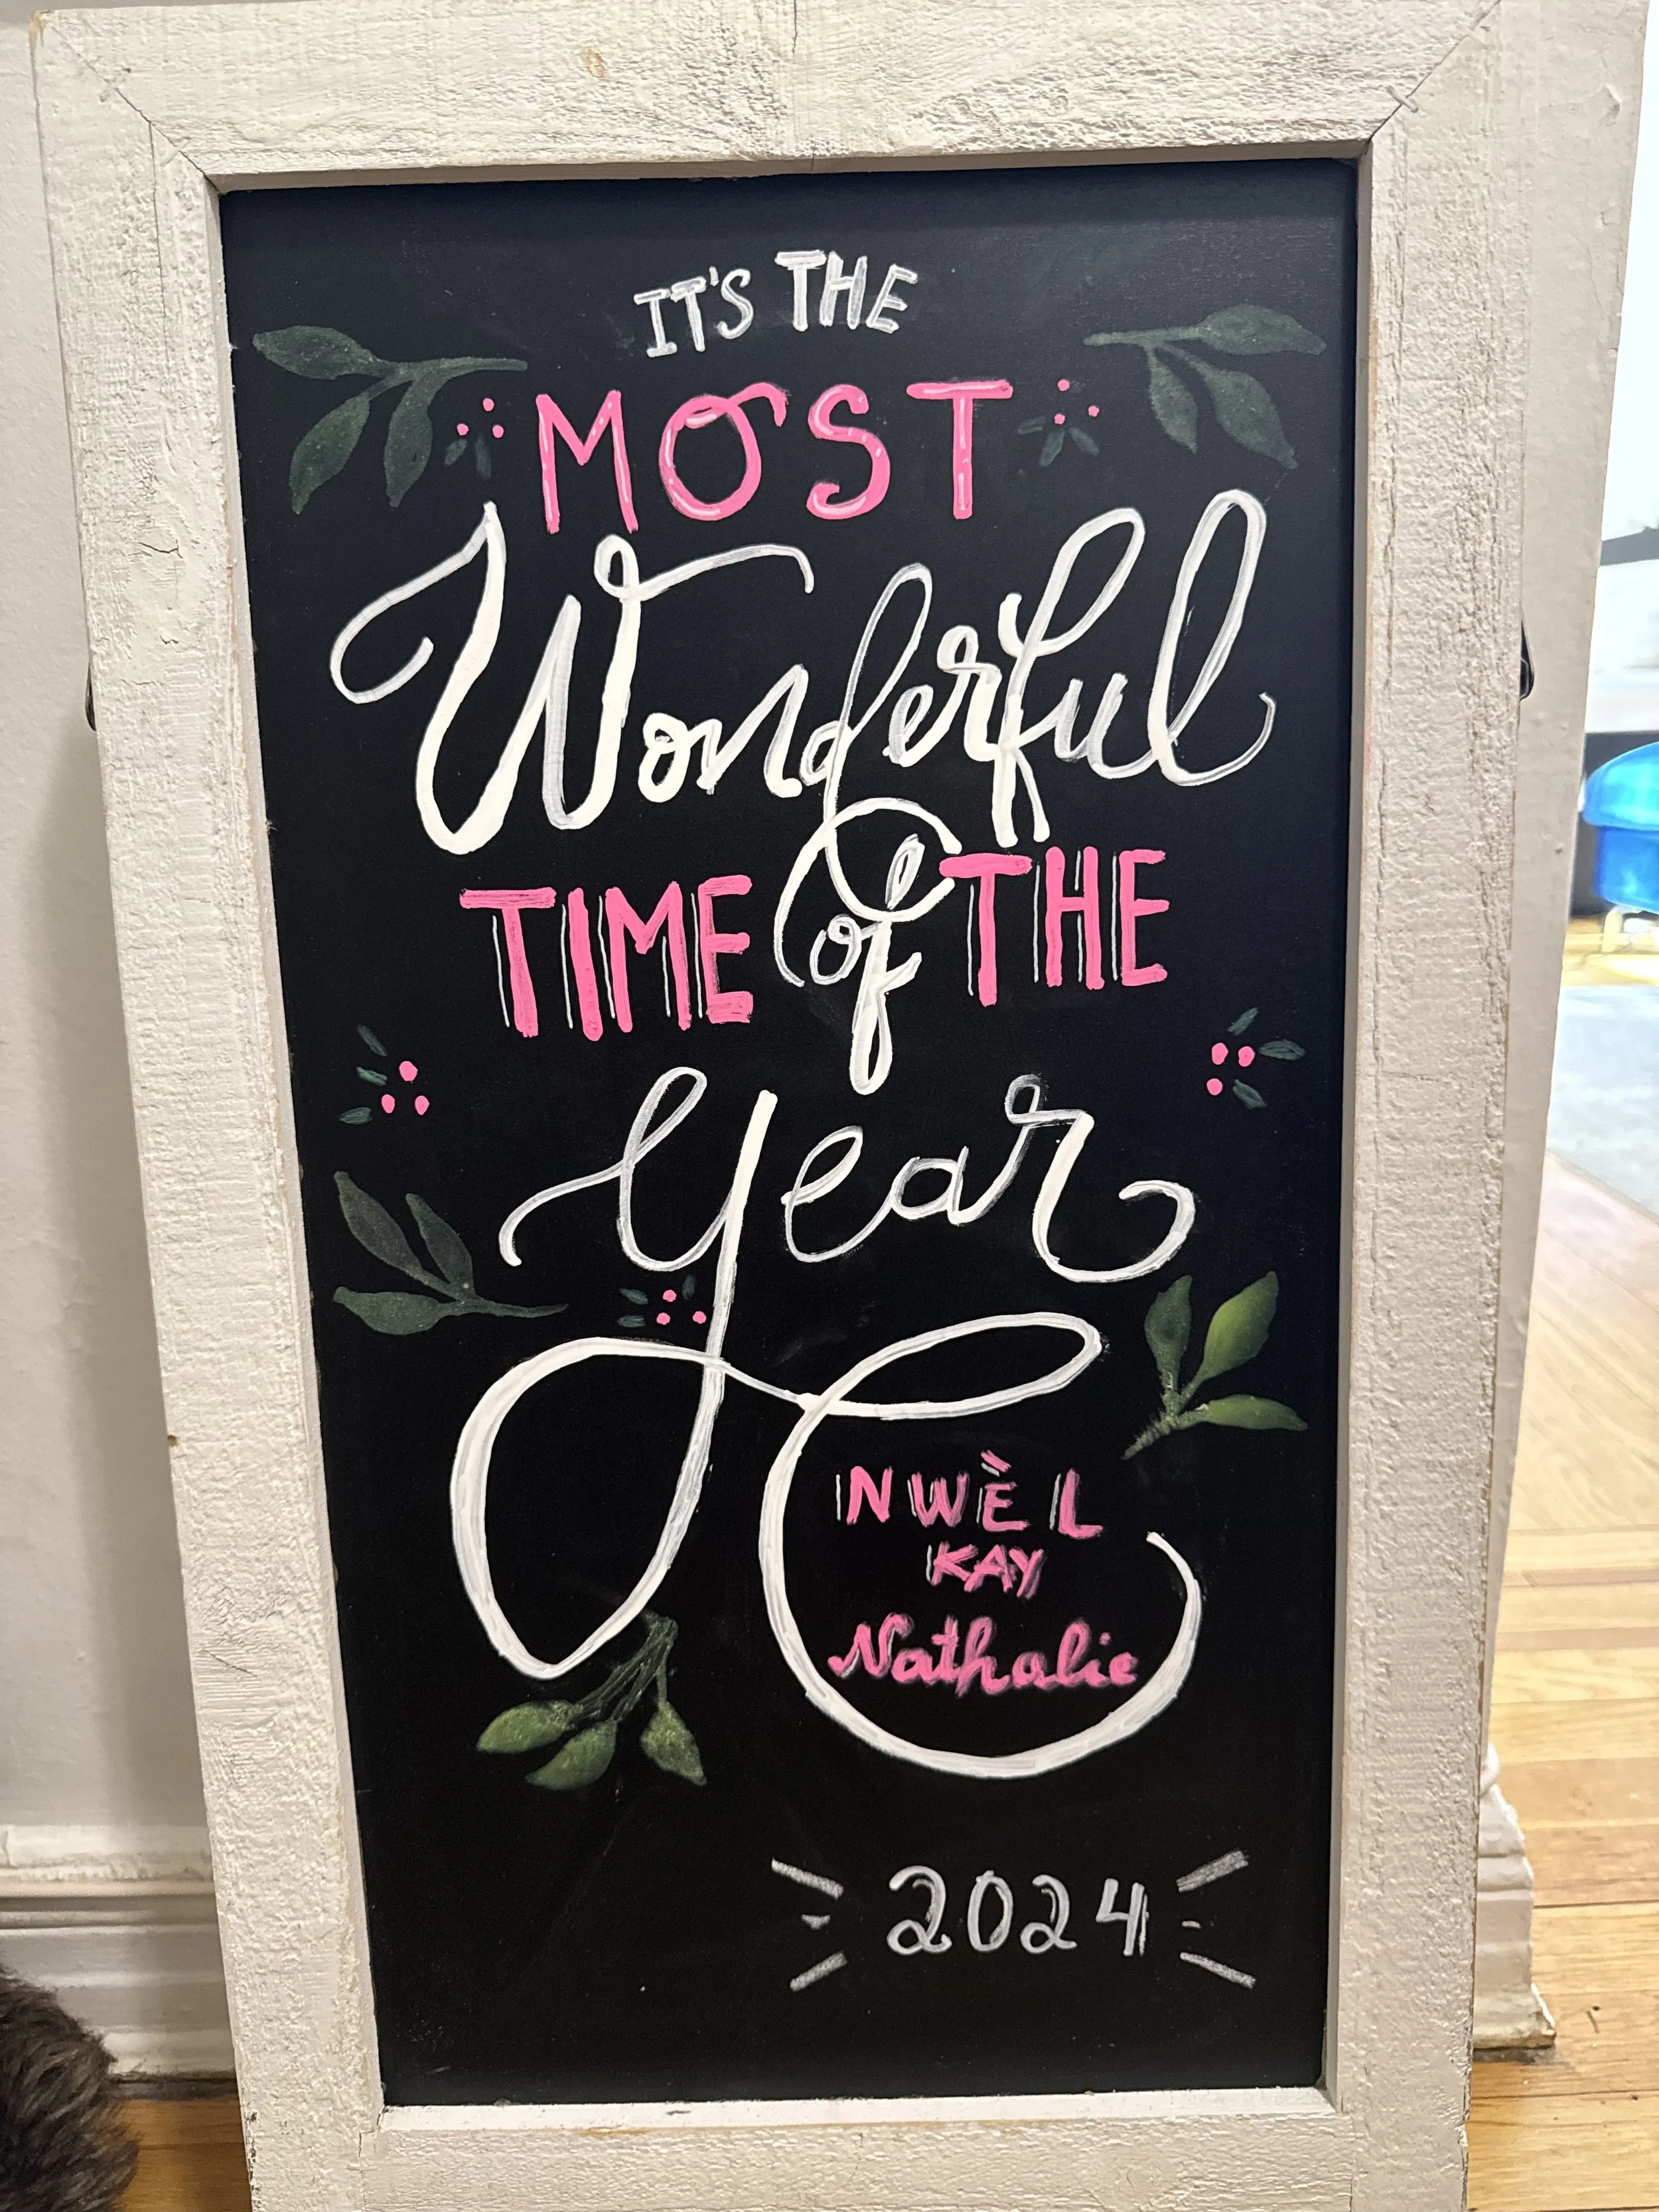 IT'S THE
MOST
Wonderful
TIME of THE
year
NWÈL
KAY
Nathalie
2024